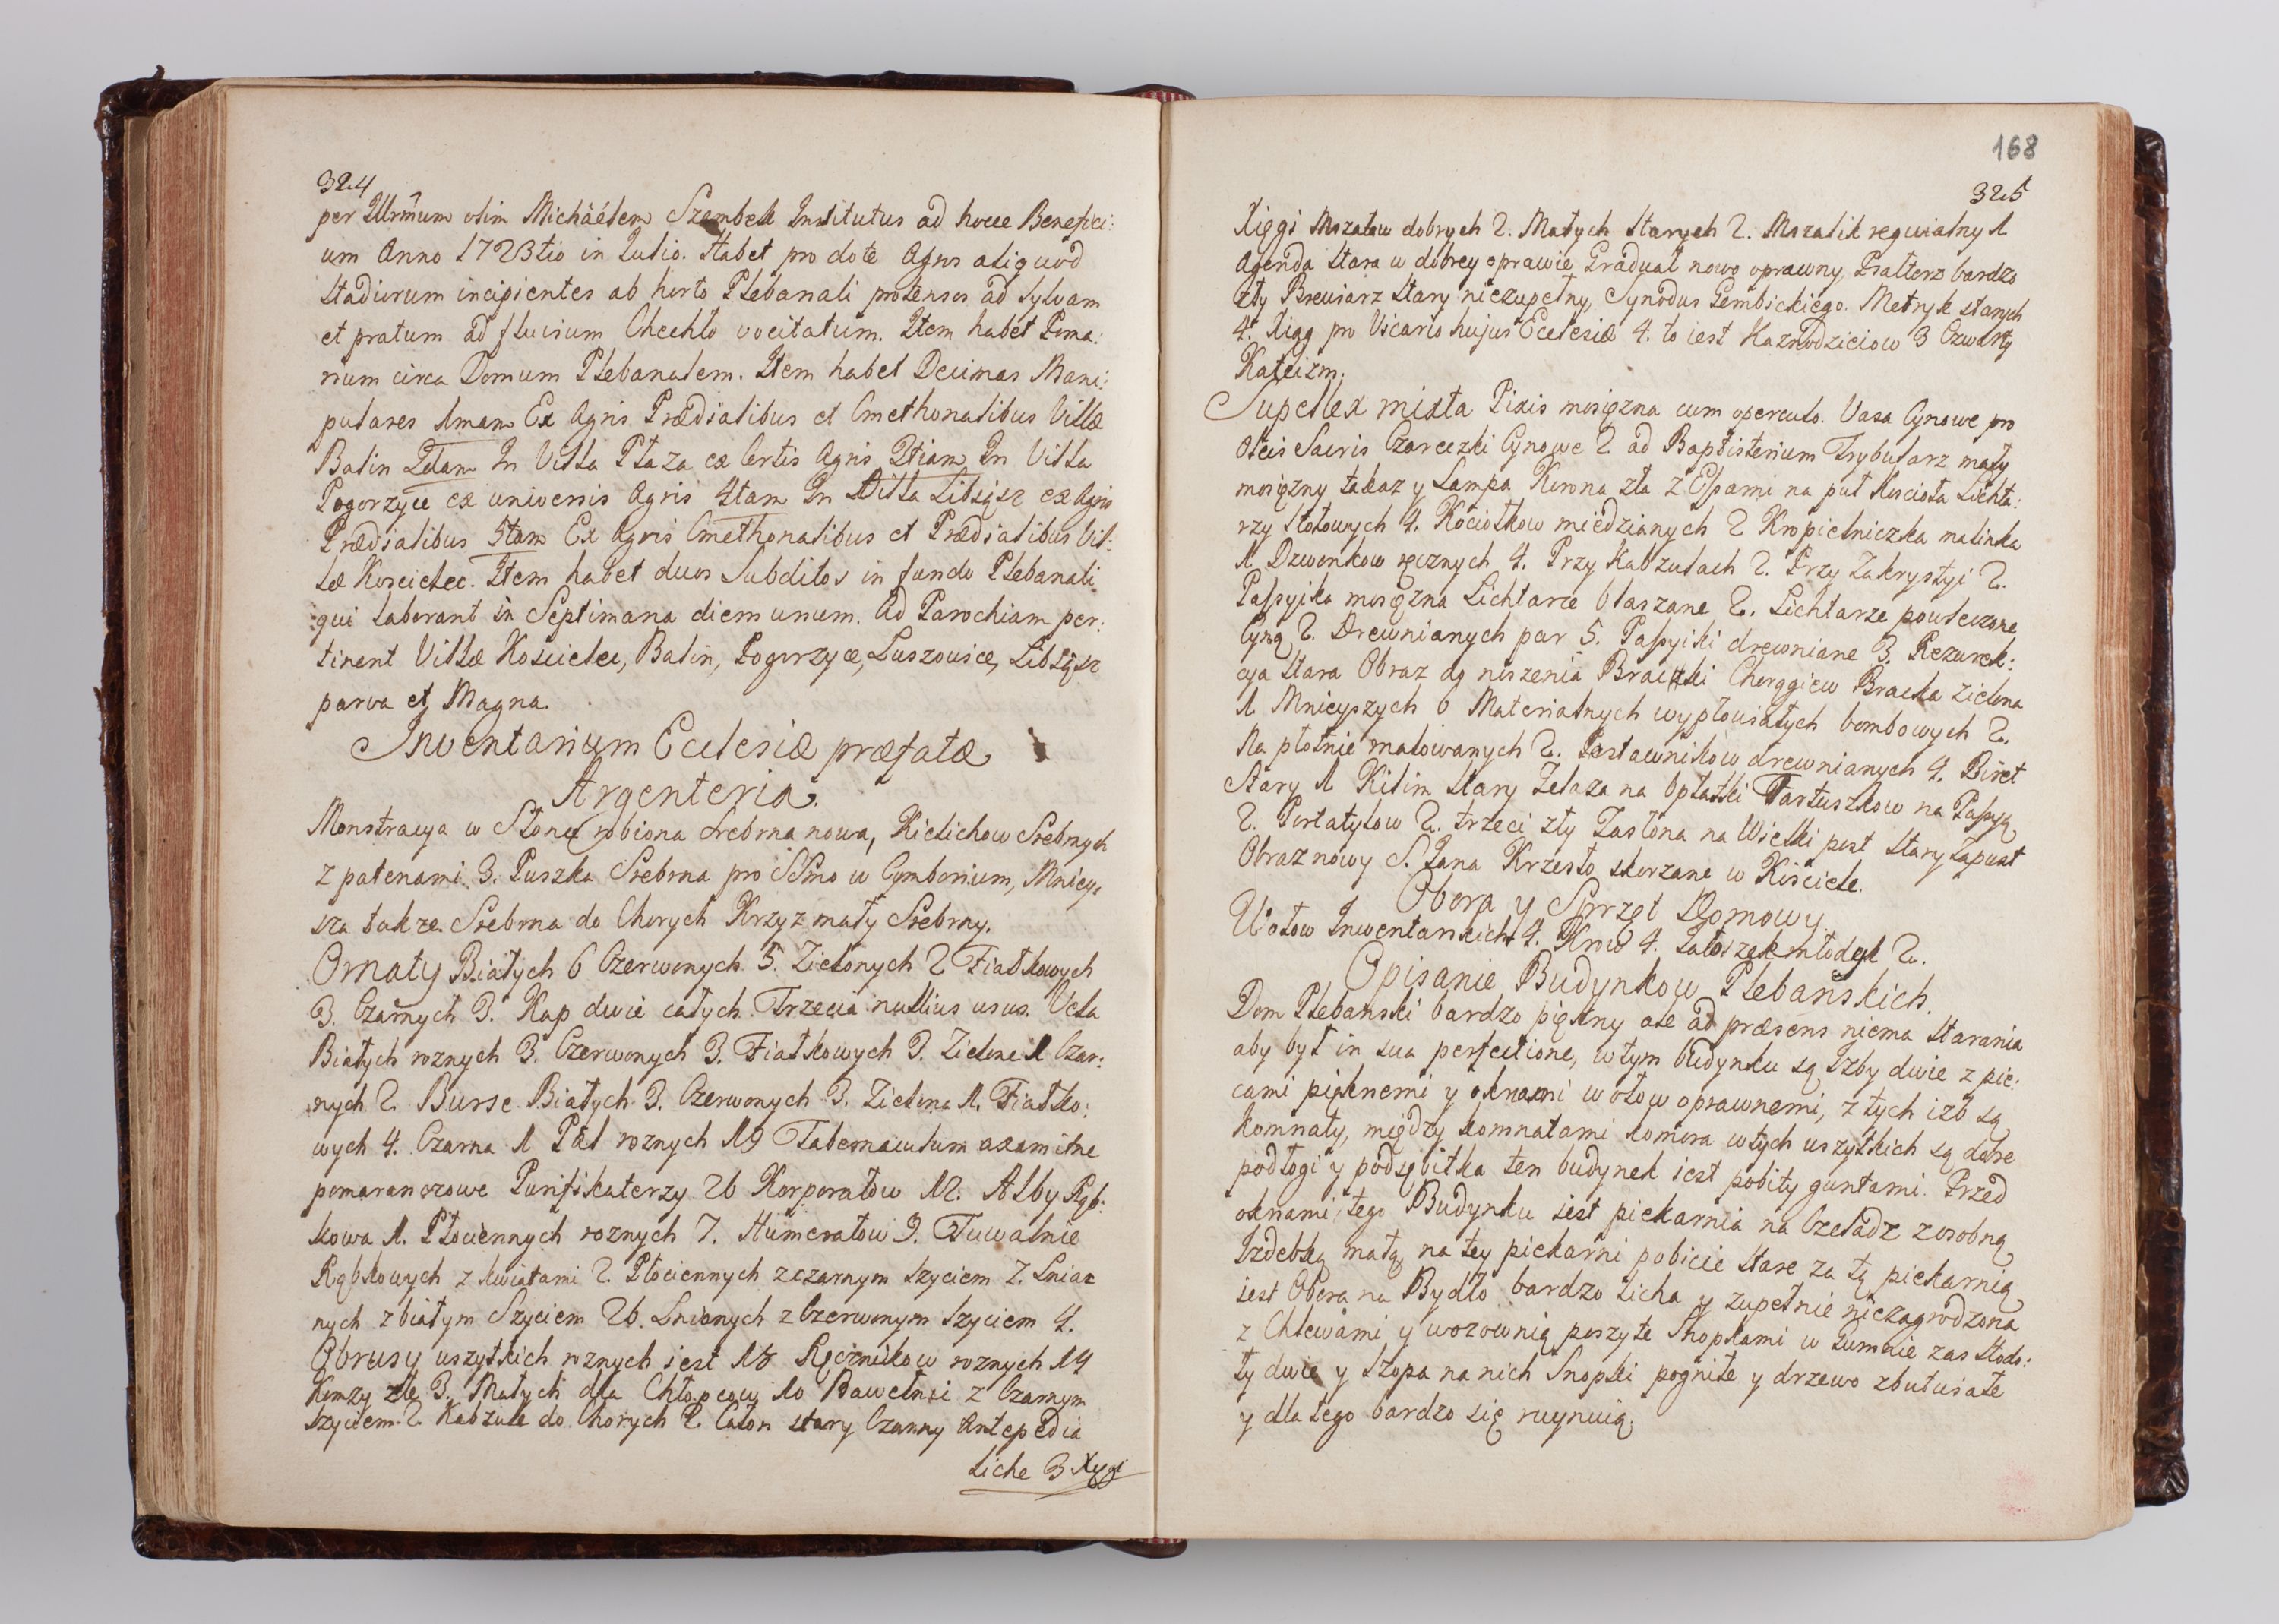 324
per Illrm̃um olim Michäélem Szembek Institutus ad hocce Benefici:
um Anno 1723tio in Julio. Habet pro dote Agros aliquod
Stadiorum incipientes ab horto Plebanali protensos ad Sylvam
et pratum ad fluvium Chechło vocitatum. Item habet Poma:
rium circa Domum Plebanalem. Item habet Decimas Mani:
pulares 1mam Ex Agris Prædialibus et Cmethonalibus Villæ
Balin 2dam In Villa Płaza ex Certis Agris 3tiam In Villa
Pogorzyce ex universis Agris 4tam In Villa Libiąsz ex Agris
Prædialibus 5tam Ex Agris Cmethonalibus et Prædialibus Vil:
læ Koscielec. Item habet duos Subditos in fundo Plebanali
qui laborant in Septimana diem unum. Ad Parochiam per:
tinent Villæ Kościelec, Balin, Pogorzyce, Luszowice, Libiąsz
parva et Magna.
Inventarium Ecclesiæ præfatæ
Argenteria.
Monstracya w Słonce robiona srebrna nowa, Kielichow Srebrnych
z patenami 3. Puszka Srebrna pro SSmo w Cymborium, Mniey:
sza takze Srebrna do Chorych Krzyz mały Srebrny.
Ornaty Białych 6 Czerwonych 5. Zielonych 2 Fiałkowych
3. Czarnych 3. Kap dwie całych Trzecia nullius usus. Vela
Białych roznych 3. Czerwonych 3. Fiałkowych 3. Zielone 1 Czar:
nych 2 Burse Białych 3. Czerwonych 3. Zielona 1. Fiałko:
wych 4. Czarna 1 Pal roznych 19 Tabernaculum axamitne
pomaranczowe Puryfikaterzy 26 Korporałow 12. Alby Rąb:
kowa 1. Płociennych roznych 7. Humerałow 9. Tuwalnie
Rąbkowych z kwiatami 2. Płociennych z czarnym szyciem 7. Lniaz
nych z białym Szyciem 26. Lnianych z Czerwonym Szyciem 4.
Obrusy wszytkich roznych iest 18 Ręcznikow roznych 14
Komzy złe 3. Małych dla Chłopcow 10 Bawełnic z Czarnym
szyciem 2 Kabzule do Chorych 2. Całon stary Czarny Antepedia
Liche 3 Xięgi
168
325
Xięgi Mszałow dobrych 2. Małych starych 2. Mszalik requialny 1
Agenda stara w dobrey oprawie Graduał nowo oprawny, Psałterz bardzo
zły Brewiarz stary niezupełny, Synodus Gembickiego. Metryk starych
4. Xiąg pro Vicario hujus Ecclesiæ 4. to iest Kaznodzieiow 3 Czwarty
Kateizm.
Supellex mixta Pixis mosiązna cum operculo. Vasa Cynowe pro
Oleis Sacris Czareczki Cynowe 2 ad Baptisterium Trybularz mały
mosiązny takaz y Lampa Korona zła z Espami na puł kościoła Lichta:
rzy stołowych 4. Kociołkow miedzianych 2 Kropielniczka malinka
1. Dzwonkow ręcznych 4. Przy Kabzulach 2. Przy Zakrystyi 2.
Passyika mosiązna Lichtarze blaszane 2. Lichtarze powleczone
Cyną 2. Drewnianych par 5. Passyiki drewniane 3. Rezurek:
cya stara Obraz do noszenia Bracki Chorągiew Bracka zielona
1. Mnieyszych 6 Materialnych wypłowiałych bombowych 2.
Na płotnie malowanych 2. Postawnikow drewnianych 4. Biret
stary 1 Kilim stary Zelaza na Opłatki Fartuszkow na Passyą
2. Portatylow 2. trzeci zły Zasłona na Wielki post stary Zapust
Obraz nowy S. Jana Krzesło skorzane w Kościele.
Obora y Sprzęt Domowy.
Wołow Inwentarskich 4. Krow 4. Jałoszek młodych 2.
Opisanie Budynkow Plebańskich.
Dom Plebanski bardzo piękny ale ad præsens niema starania
aby był in sua perfectione, w tym budynku są Izby dwie z pie:
cami pięknemi y oknami w ołow oprawnemi, z tych izb są
Komnaty, między komnatami komora w tych wszytkich są dobre
podłogi y podsębitka ten budynek iest pobity guntami. Przed
oknami tego Budynku iest piekarnia na Czeladz z osobną
Izdebką małą, na tey piekarni pobicie stare za tą piekarnią
iest Obora na Bydło bardzo licha y zupełnie niezagrodzona
z Chlewami y wozownią poszyte Snopkami w Gumnie zas stodo:
ły dwie y szopa na nich Snopki pogniłe y drzewo zbutwiałe
y dla tego bardzo się ruynuią.